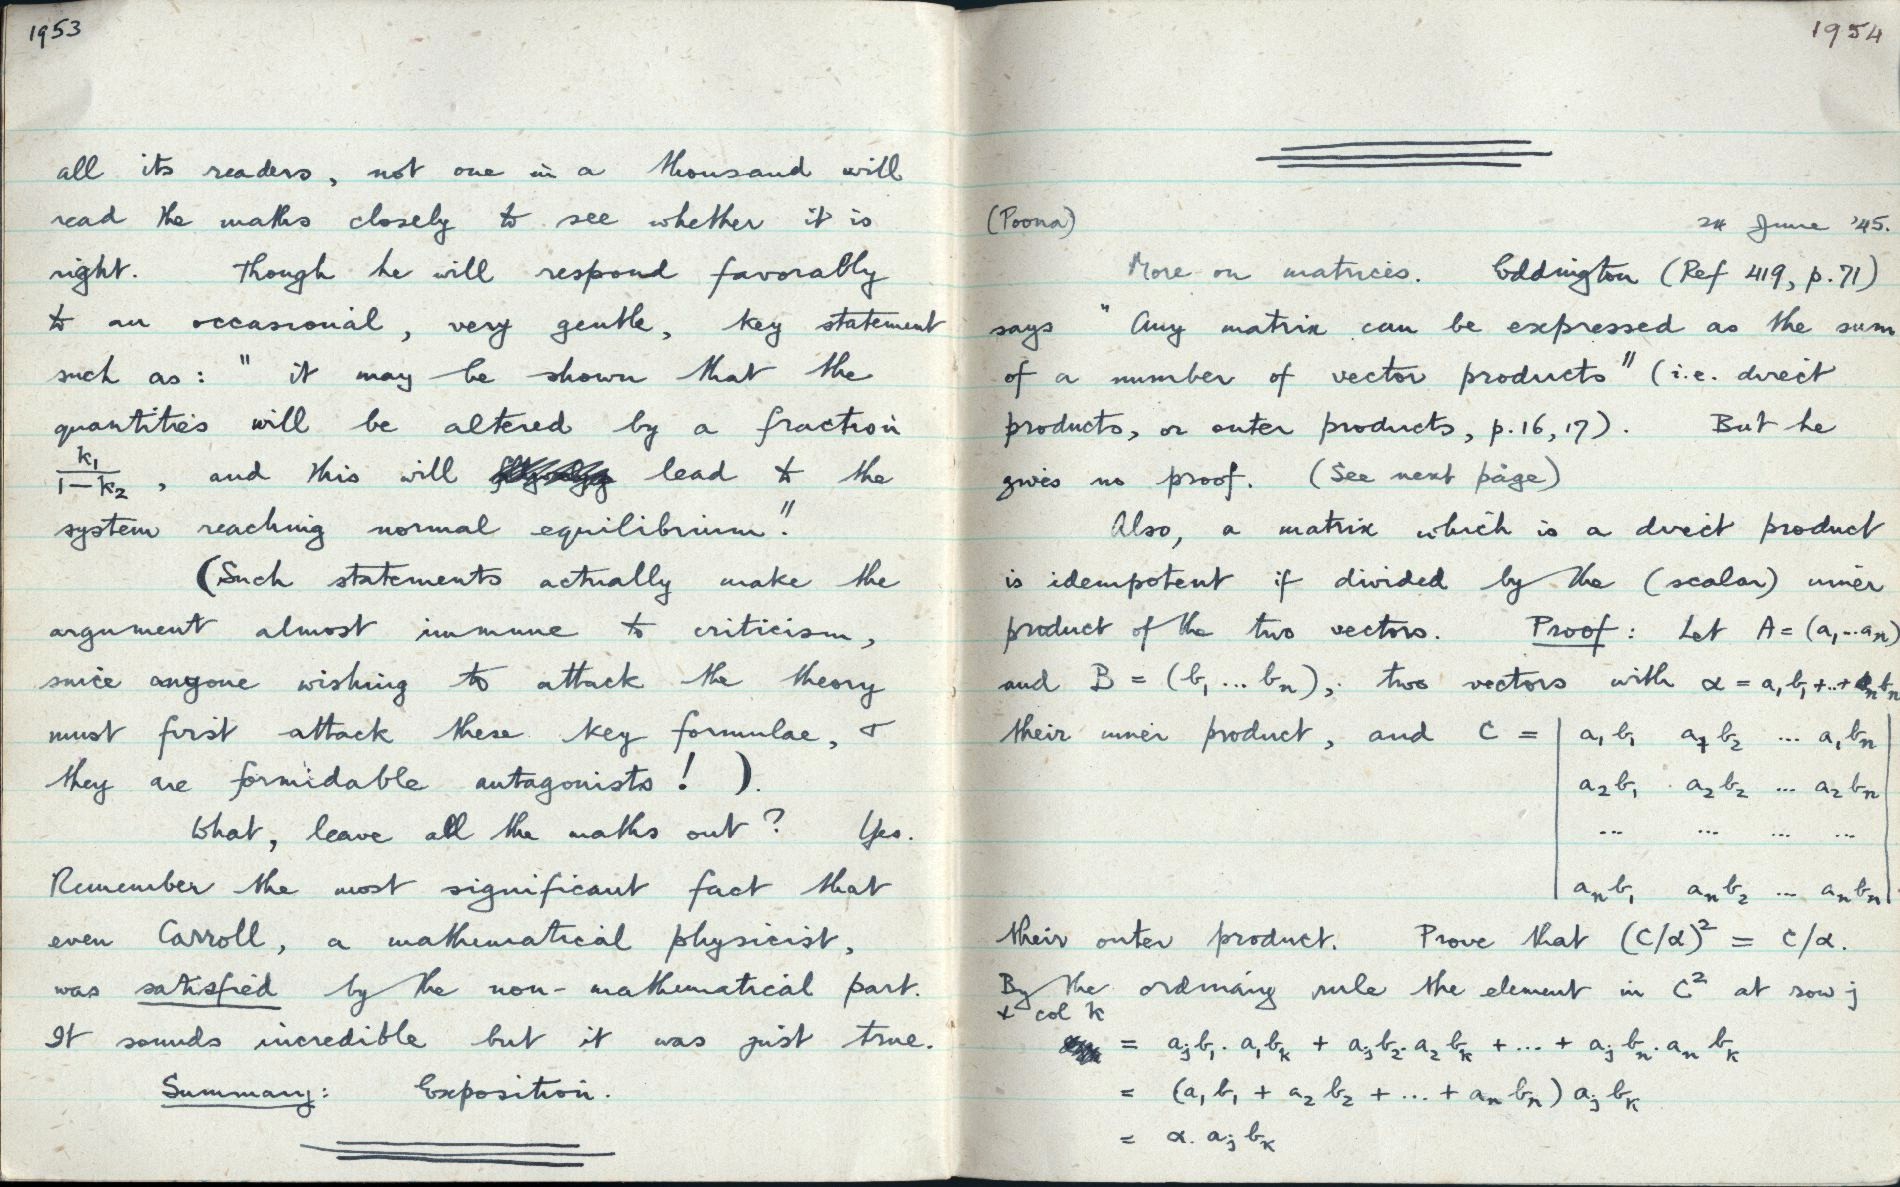 1953
all its readers, not one in a thousand will
read the maths closely to see whether it is
right. Though he will respond favorably
to an occasional, very gentle, key statement
such as: "it may be shown that the
quantities will be altered by a fraction
k₁/(1−k₂), and this will lead to the
system reaching normal equilibrium".
(Such statements actually make the
argument almost immune to criticism,
since anyone wishing to attack the theory
must first attack these key formulae, &
they are formidable antagonists! ).
What, leave all the maths out? Yes.
Remember the most significant fact that
even Carroll, a mathematical physicist,
was satisfied by the non-mathematical part.
It sounds incredible but it was just true.
Summary: Exposition.
1954
(Poona) 24 June '45.
More on matrices. Eddington (Ref 419, p.71)
says "Any matrix can be expressed as the sum
of a number of vector products" (i.e. direct
products, or outer products, p.16, 17). But he
gives no proof. (See next page)
Also, a matrix which is a direct product
is idempotent if divided by the (scalar) inner
product of the two vectors. Proof: Let A = (a₁...aₙ)
and B = (b₁ ... bₙ), two vectors with α = a₁b₁+..+aₙbₙ
their inner product, and C = | a₁b₁ a₁b₂ ... a₁bₙ |
a₂b₁ a₂b₂ ... a₂bₙ
... ... ... ...
aₙb₁ aₙb₂ ... aₙbₙ
their outer product. Prove that (C/α)² = C/α.
By the ordinary rule the element in C² at row j
& col k
= aⱼb₁.a₁bₖ + aⱼb₂.a₂bₖ + ... + aⱼbₙ.aₙbₖ
= (a₁b₁ + a₂b₂ + ... + aₙbₙ) aⱼbₖ
= α.aⱼbₖ